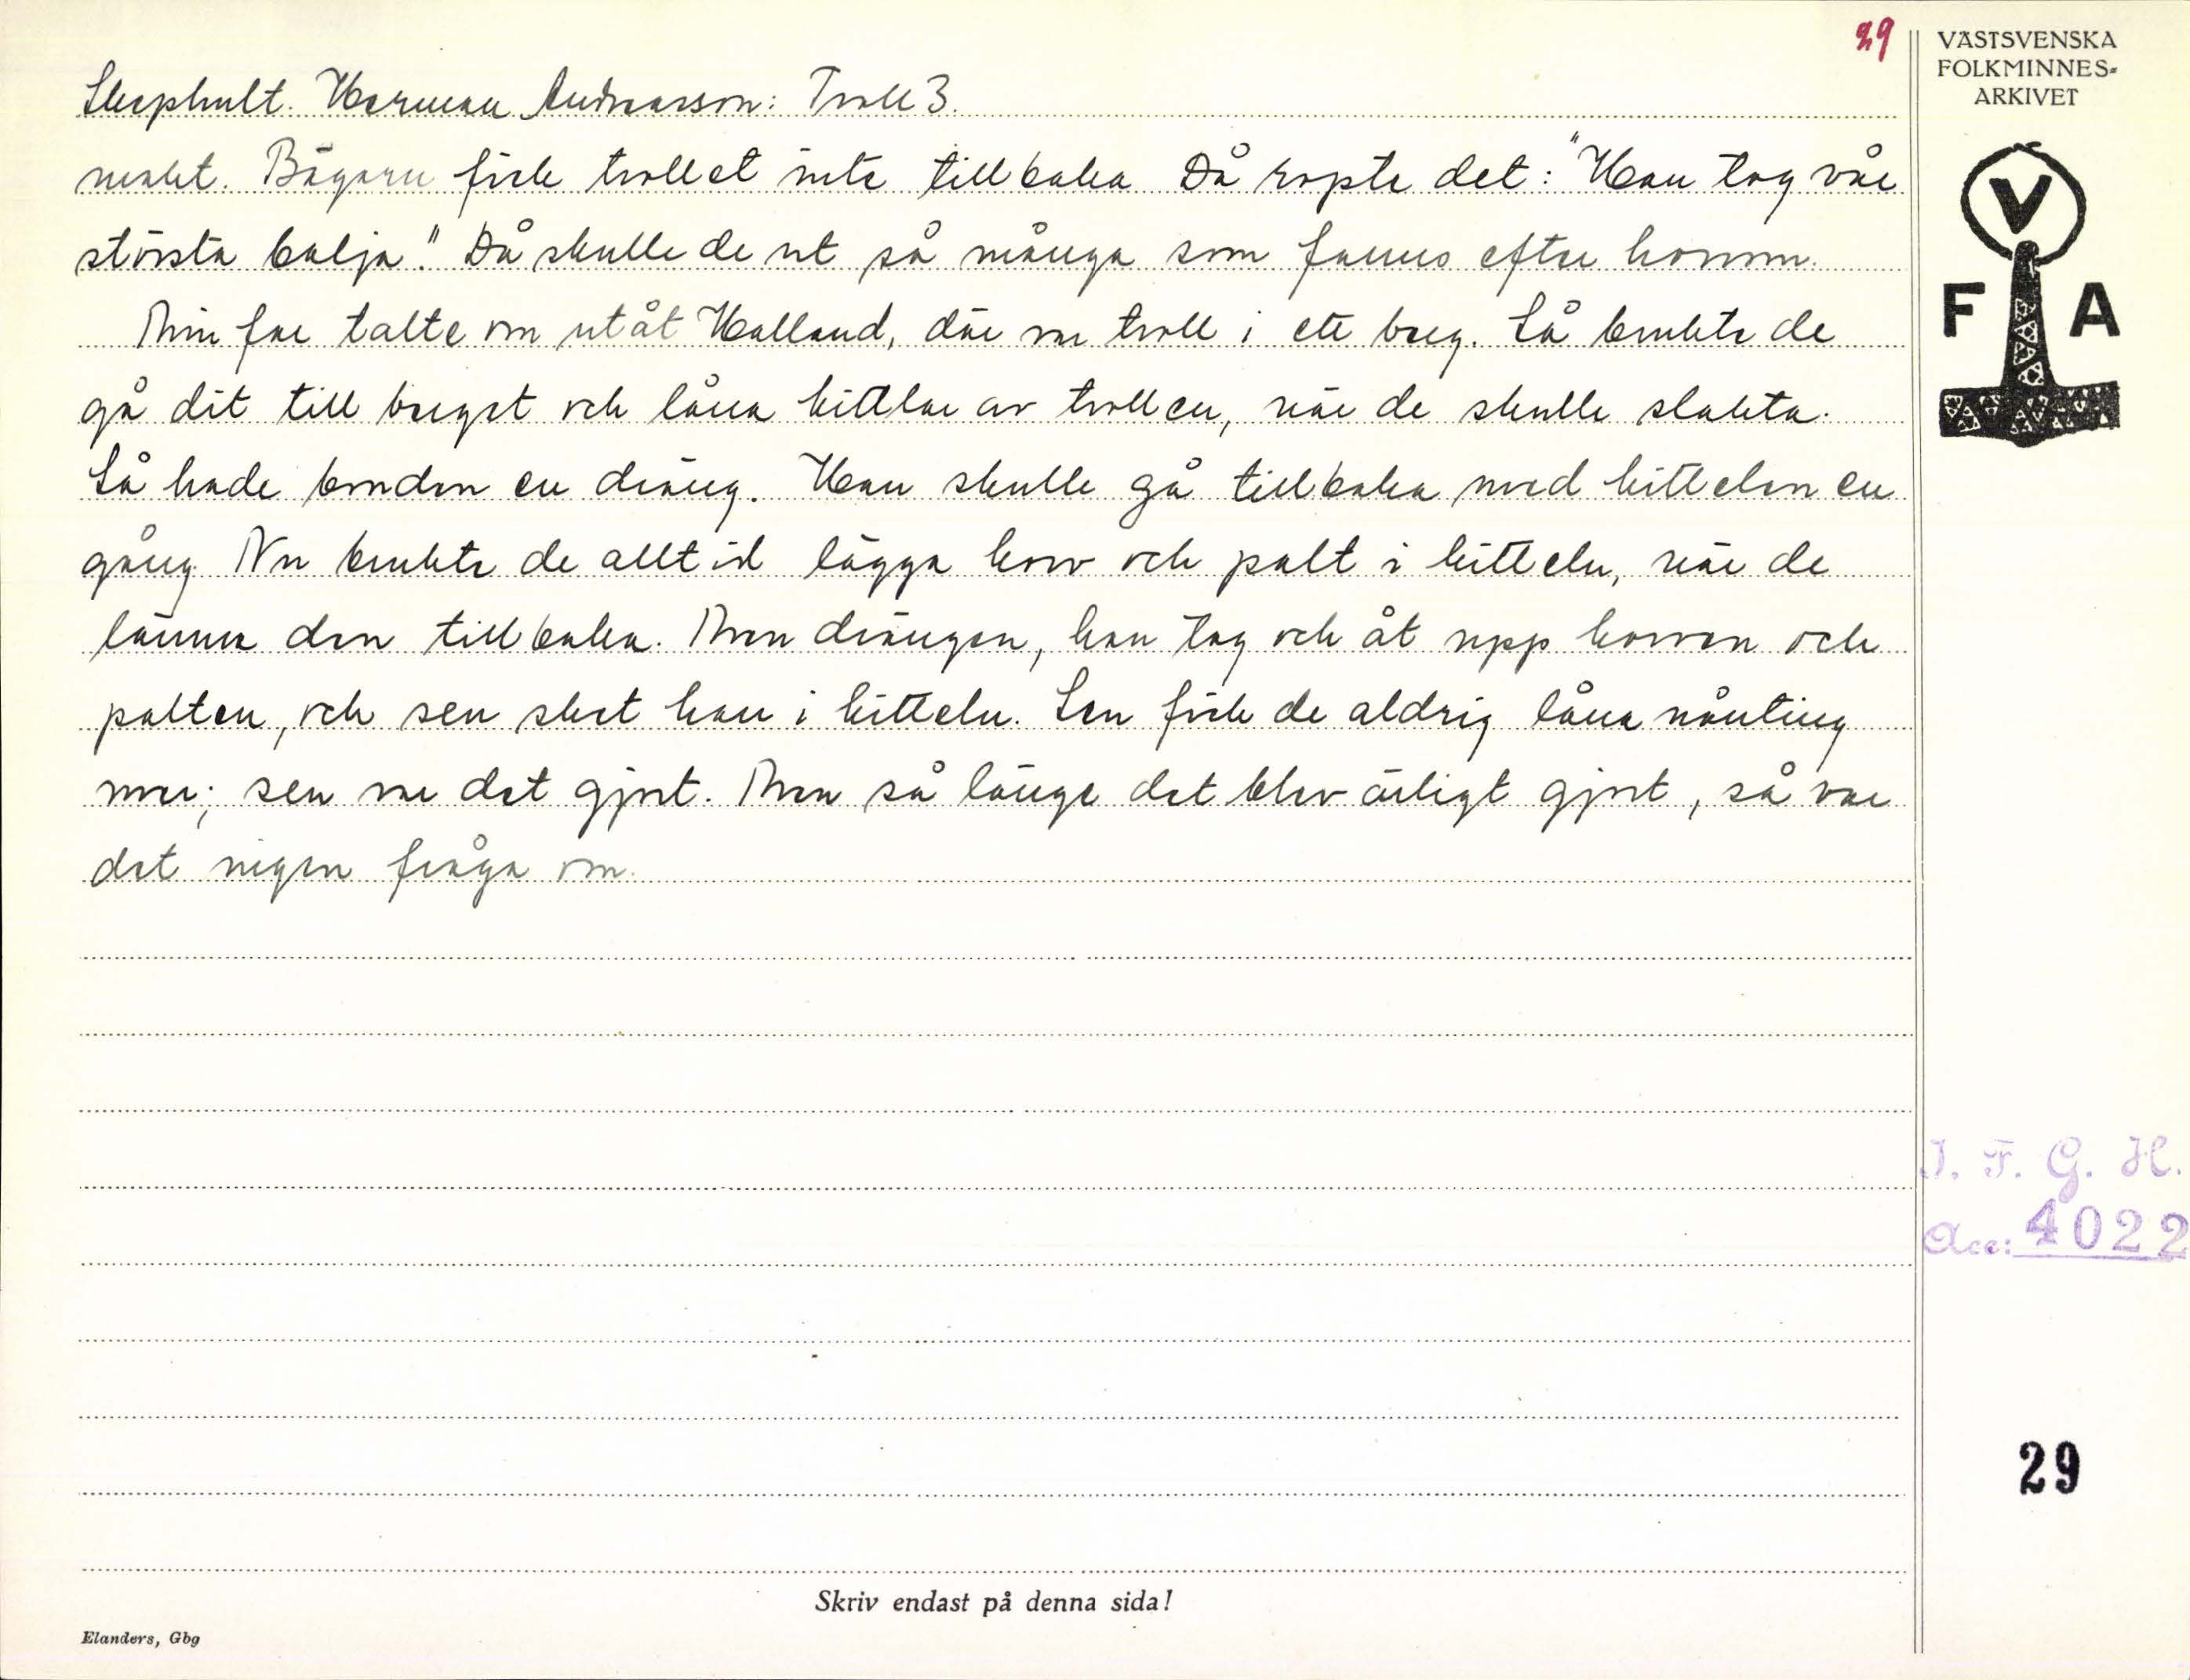 29
VÄSTSVENSKA
FOLKMINNES-
ARKIVET
V
F A
Skephult. Herman Andreasson: Troll 3.
makt. Bägarn fick trollet inte tillbaka Då ropte det: "Han tog vår
största balja." Då skulle de ut så många som fanns efter honom.
Min far talte om utåt Halland, där var troll i ett berg. Så brukte de
gå dit till berget och låna kittlar av trollen, när de skulle slakta.
Så hade bonden en dräng. Han skulle gå tillbaka med kittelen en
gång Nu brukte de alltid lägga korv och palt i kitteln, när de
lämna den tillbaka. Men drängen, han tog och åt upp korven och
palten, och sen sket han i kitteln. Sen fick de aldrig låna nånting
mer; sen var det gjort. Men så länge det blev ärligt gjort, så var
det ingen fråga om.
I. F. G. H.
Acc: 4022
29
Skriv endast på denna sida!
Elanders, Gbg